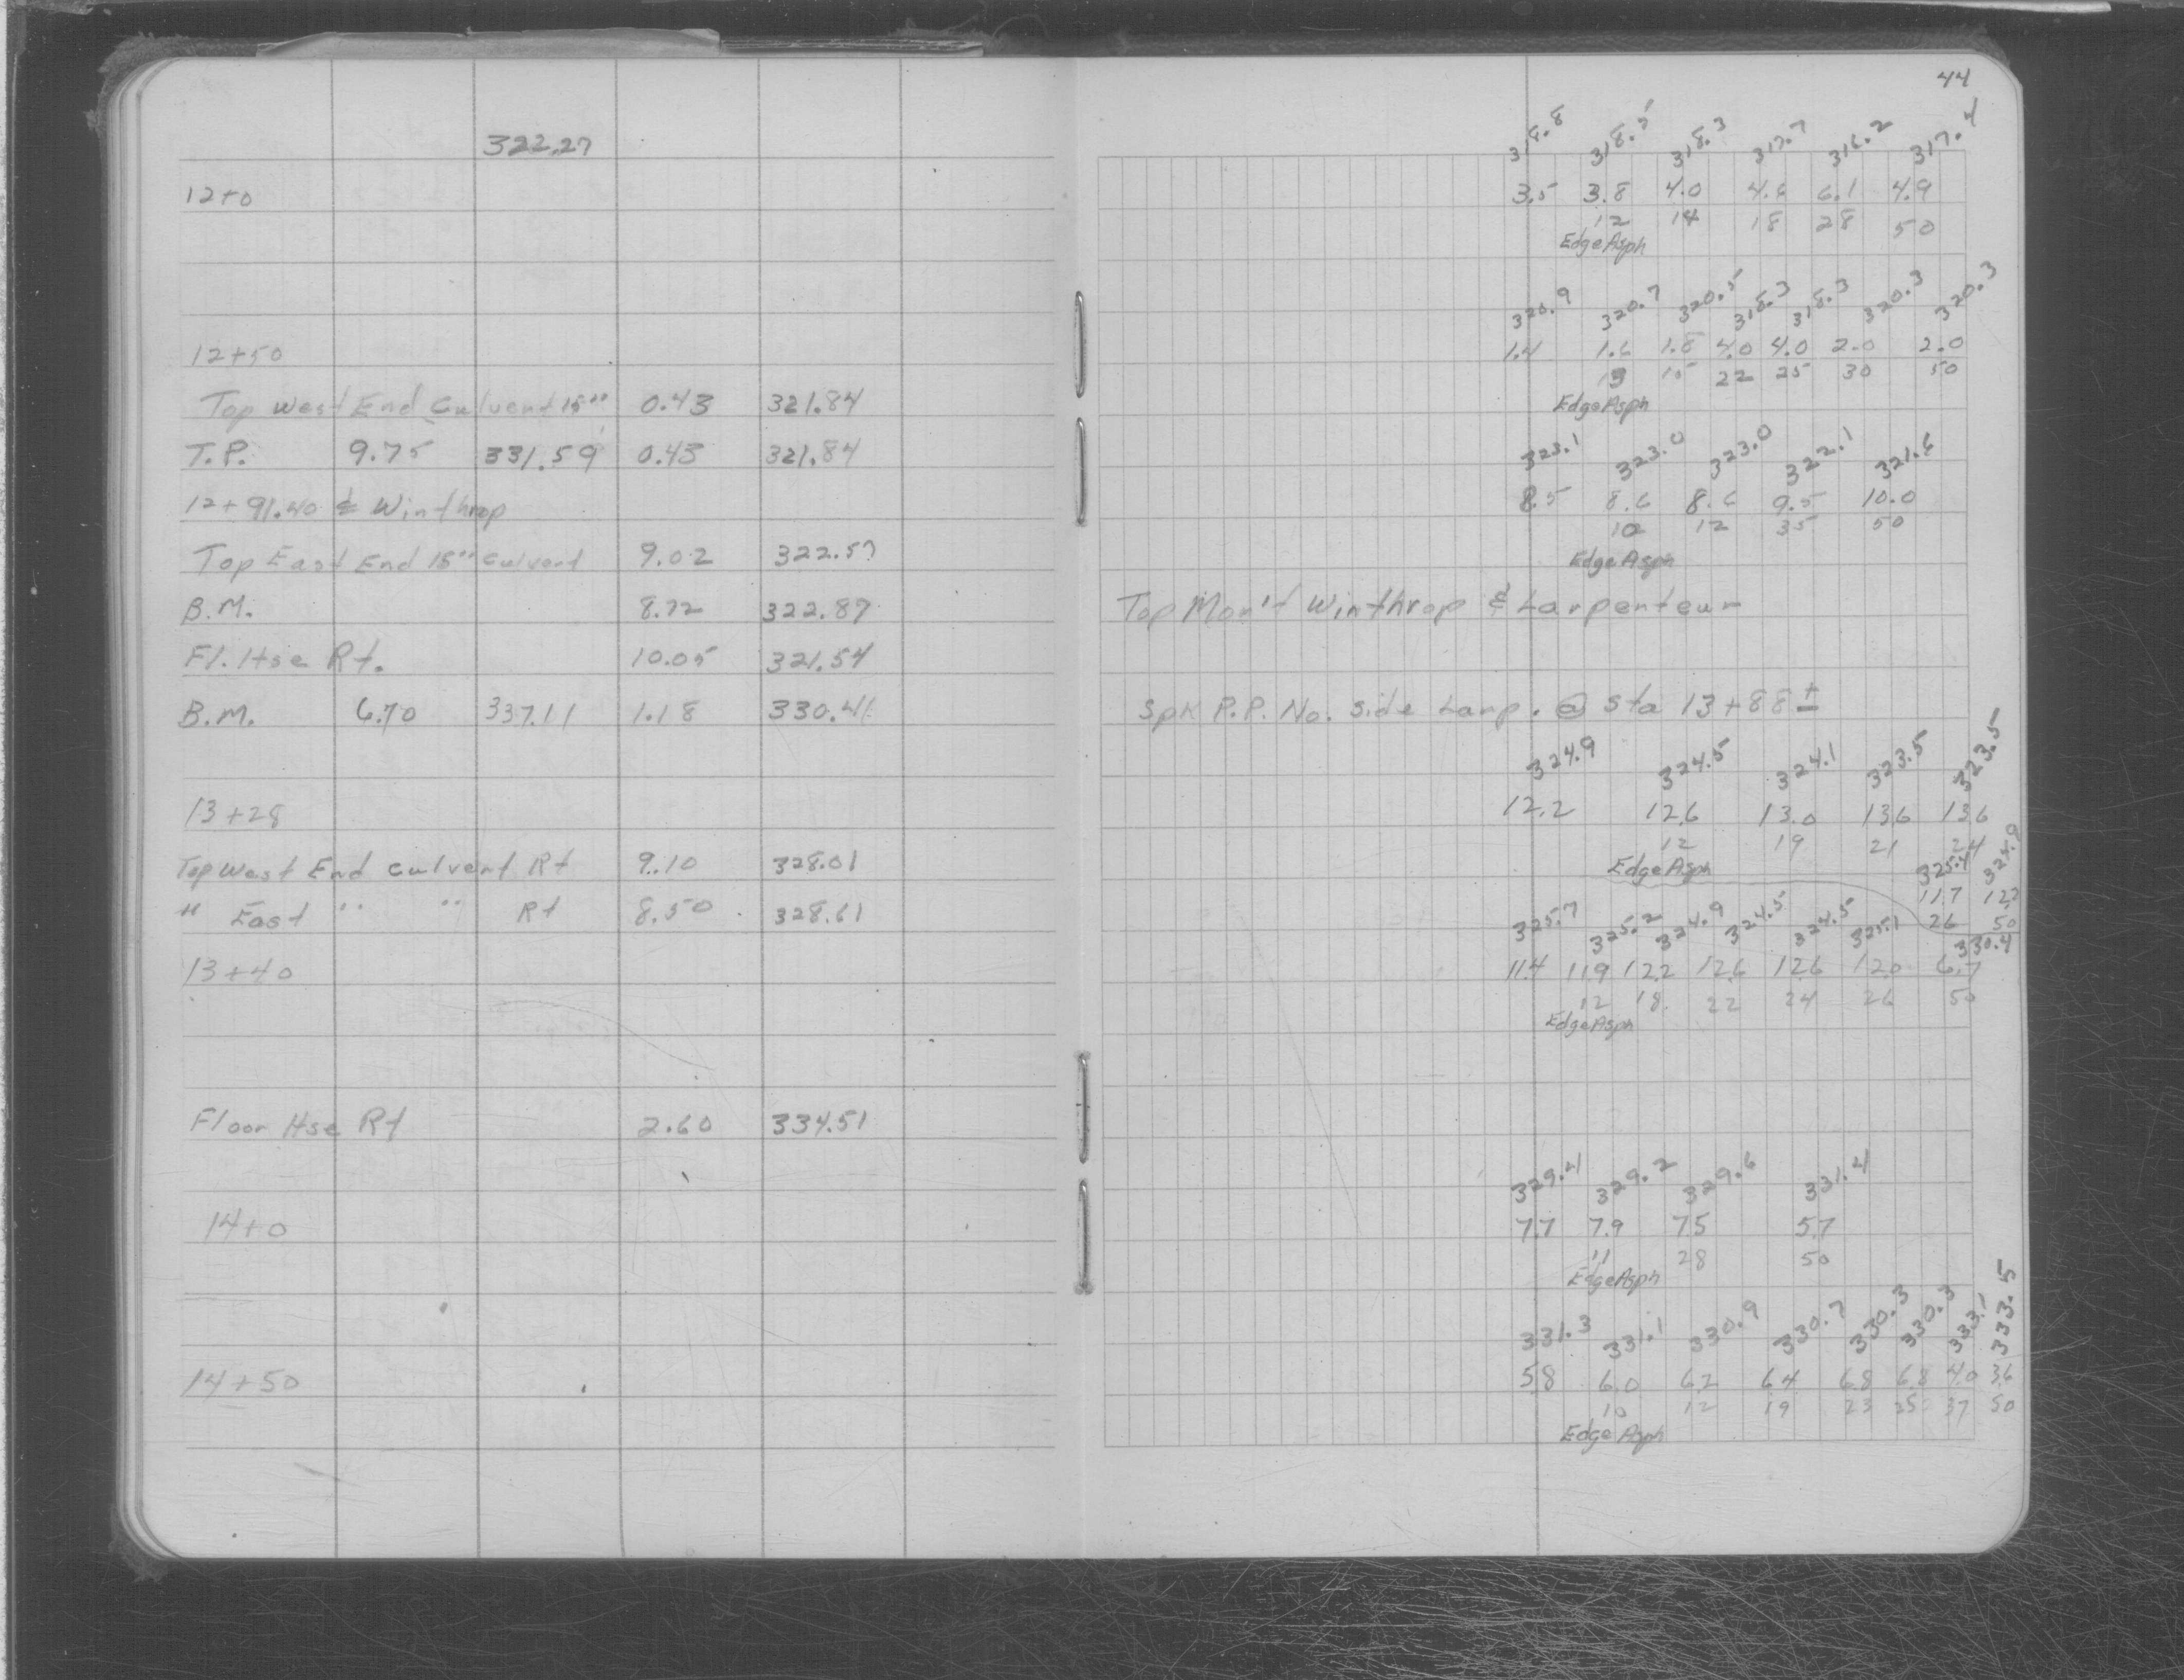 322.27
12+0
12+50
Top West End Culvert 15" 0.43 321.84
T.P. 9.75 331.59 0.43 321.84
12+91.40 ⅊ Winthrop
Top East End 15" Culvert 9.02 322.57
B.M. 8.72 322.87
Fl. Hse Rt. 10.05 321.54
B.M. 6.70 337.11 1.18 330.41
13+28
Top West End Culvert Rt 9.10 328.01
" East " " Rt 8.50 328.61
13+40
Floor Hse Rt 2.60 334.51
14+0
14+50
44
318.8 318.5 318.3 317.7 316.2 317.4
3.5 3.8 4.0 4.6 6.1 4.9
12 14 18 28 50
Edge Asph
320.9 320.7 320.5 318.3 318.3 320.3 320.3
1.4 1.6 1.8 4.0 4.0 2.0 2.0
13 15 22 25 30 50
Edge Asph
323.1 323.0 323.0 322.1 321.6
8.5 8.6 8.6 9.5 10.0
10 12 35 50
Edge Asph
Top Mon't Winthrop & Larpenteur
Spk P.P. No. Side Larp. @ Sta 13+88±
324.9 324.5 324.1 323.5 323.5
12.2 12.6 13.0 13.6 13.6
12 19 21 24
Edge Asph
325.4 324.9
11.7 12.2
26 50
325.7 325.2 324.9 324.5 324.5 325.1 330.4
11.4 11.9 12.2 12.6 12.6 12.0 6.7
12 18 22 24 26 50
Edge Asph
329.4 329.2 329.6 331.4
7.7 7.9 7.5 5.7
11 28 50
Edge Asph
331.3 331.1 330.9 330.7 330.3 330.3 333.1 333.5
5.8 6.0 6.2 6.4 6.8 6.8 4.0 3.6
10 12 19 23 25 37 50
Edge Asph